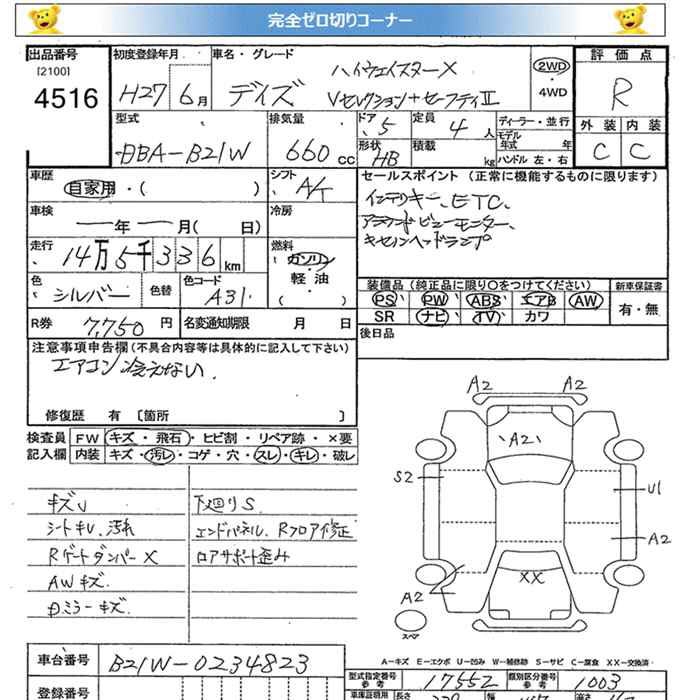 完全ゼロ切りコーナー
出品番号 初度登録年月 車名・グレード 評価点
[2100]
4516
H27 6月 デイズ ハイウェイスターX
Vセレクション+セーフティII
2WD
・
4WD
R
型式 排気量 ドア 定員 ディーラー・並行 外装 内装
DBA-B21W 660cc 5 4人
モデル年式 年
形状 HB 積載 kg ハンドル 左・右
C C
車歴 シフト セールスポイント(正常に機能するものに限ります)
自家用・( ) A/T
インテリキー、ETC、
アラウンドビューモニター、
キセノンヘッドランプ
車検 冷房
年 月(日)
走行 燃料
14万5千336km
ガソリン
・
軽油
( )
色 色替 色コード 装備品(純正品に限り○をつけてください) 新車保証書
シルバー A31 PS PW ABS エアB AW 有・無
SR ナビ TV カワ
R券 7,750円 名変通知期限 月 日 後日品
注意事項申告欄(不具合内容等は具体的に記入して下さい)
エアコン冷えない.
修復歴 有 [箇所 ]
検査員 FW キズ・飛石・ヒビ割・リペア跡・×要
記入欄 内装 キズ・汚レ・コゲ・穴・スレ・キレ・破レ
キズU 下廻りS
シートキレ、汚れ エンドパネル、Rフロア修正
Rゲートダンパー× ロアサポート歪み
AWキズ.
Dミラーキズ.
A2 A2
A2
S2 U1
A2
XX
A2
スペア
A-キズ E-エクボ U-凹み W-補修跡 S-サビ C-腐食 XX-交換済
車台番号 B21W-0234823
型式指定番号 参考 17552 類別区分番号 参考 1003
登録番号
車庫証明用 長さ 幅 高さ